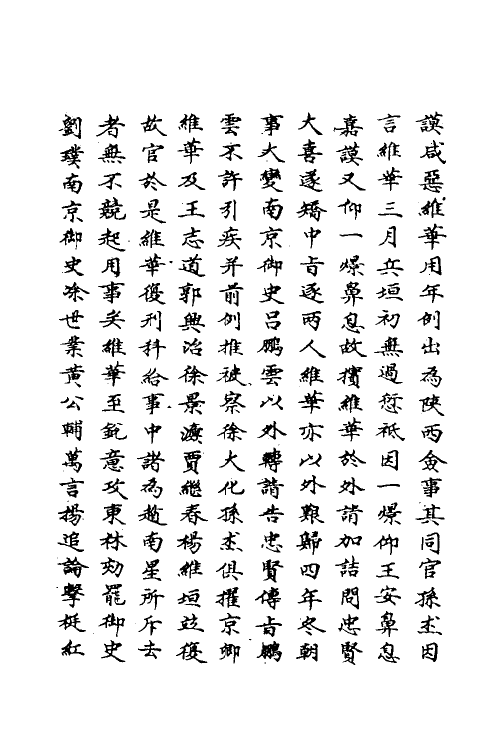 謨咸惡維華用年例出為陝西僉事其同官孫杰因
言維華三月兵垣初無過愆祇因一燝仰王安鼻息
嘉謨又仰一燝鼻息故擯維華於外請加詰問忠賢
大喜遂矯中㫖逐兩人維華亦以外艱歸四年冬朝
事大變南京御史呂鵬雲以外轉請告忠賢傳㫖鵬
雲不許引疾并前例推被察徐大化孫杰俱擢京卿
維華及王志道郭興治徐景濂賈繼春楊維垣竝復
故官於是維華復刑科給事中諸為趙南星所斥去
者無不競起用事矣維華至銳意攻東林劾罷御史
劉璞南京御史涂世業黃公輔萬言揚追論擊挺紅